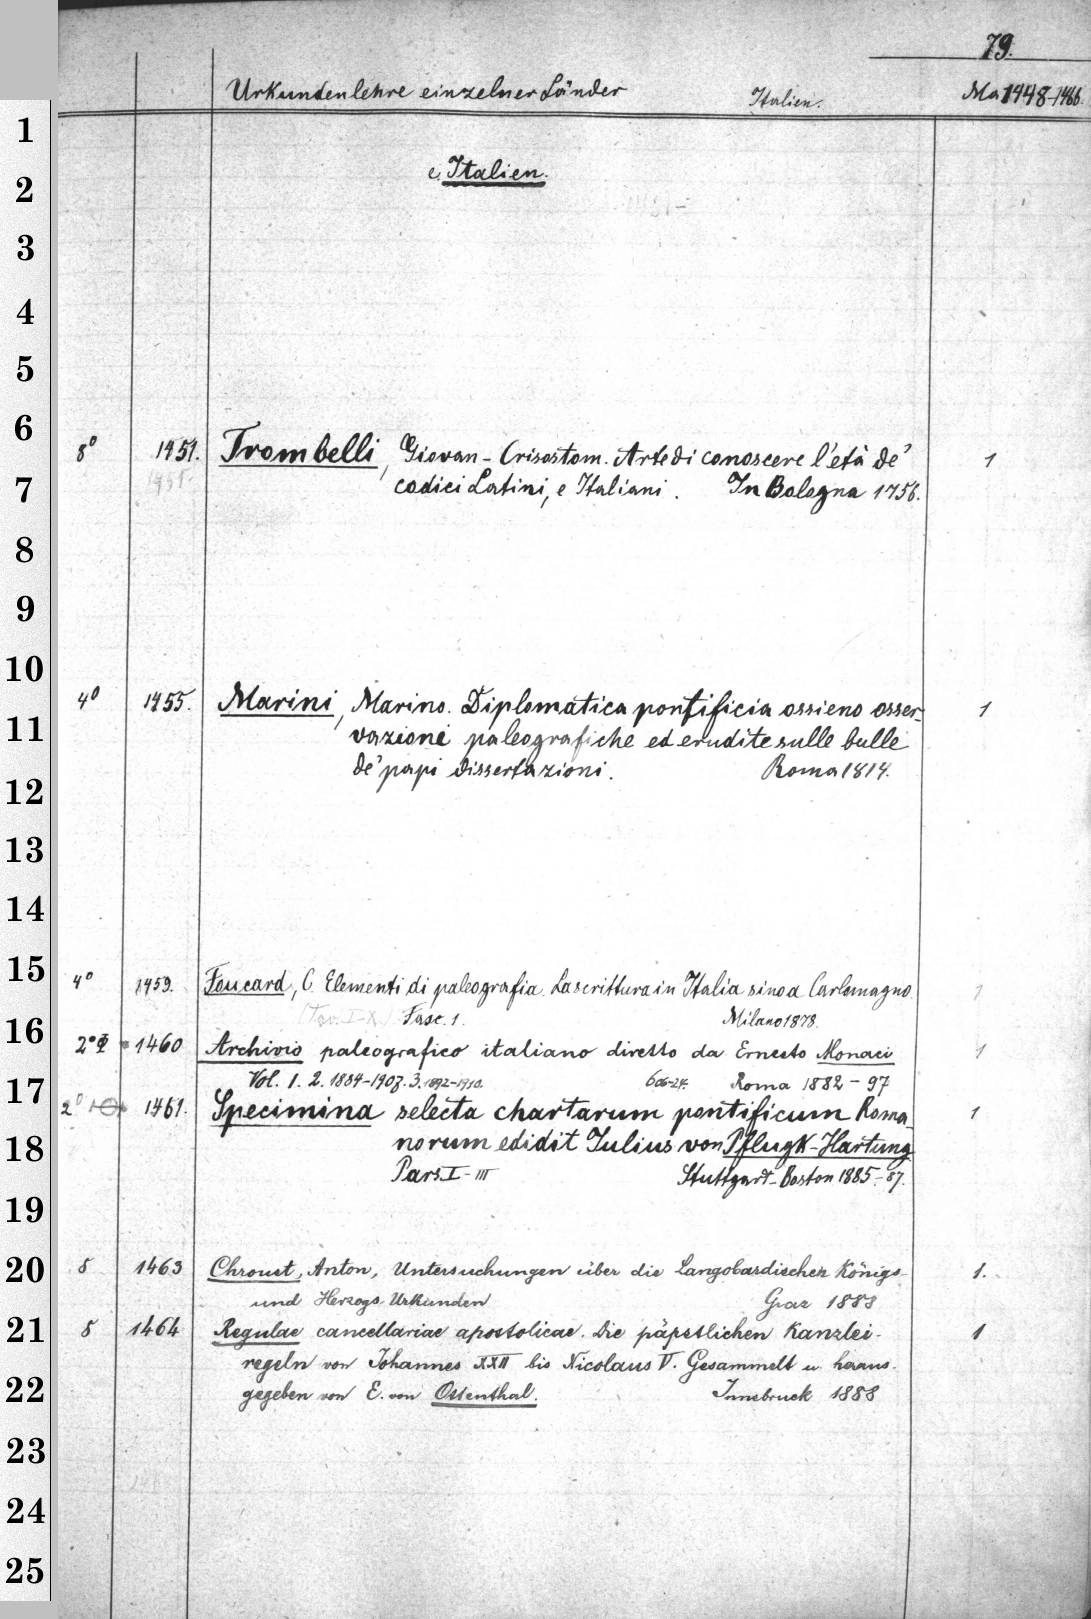 79.
Urkundenlehre einzelner Länder Italien. Ma 1448-1466
1
e. Italien.
2
3
4
5
6
8° 1451. Trombelli, Giovan-Crisostom. Arte di conoscere l'età de' 1
7 codici Latini, e Italiani. In Bologna 1756.
8
9
10
4° 1455. Marini, Marino. Diplomatica pontificia ossieno osser- 1
11 vazioni paleografiche ed erudite sulle bulle
de' papi dissertazioni. Roma 1814.
12
13
14
15
4° 1459. Foucard, C. Elementi di paleografia. La scrittura in Italia sino a Carlomagno. 1
16 (Tav. I-X) Fasc. 1. Milano 1878.
2° 1460 Archivio paleografico italiano diretto da Ernesto Monaci 1
17 Vol. 1. 2. 1884-1907. 3. 1892-1910. Roma 1882-97
2° 1461. Specimina selecta chartarum pontificum Roma- 1
18 norum edidit Iulius von Pflugk-Hartung
Pars I-III Stuttgart-Boston 1885-87.
19
20 8 1463 Chroust, Anton, Untersuchungen über die Langobardischen Königs- 1.
und Herzogs-Urkunden Graz 1888
21 8 1464 Regulae cancellariae apostolicae. Die päpstlichen Kanzlei- 1
regeln von Johannes XXII bis Nicolaus V. Gesammelt u. heraus-
22 gegeben von E. von Ottenthal. Innsbruck 1888
23
24
25